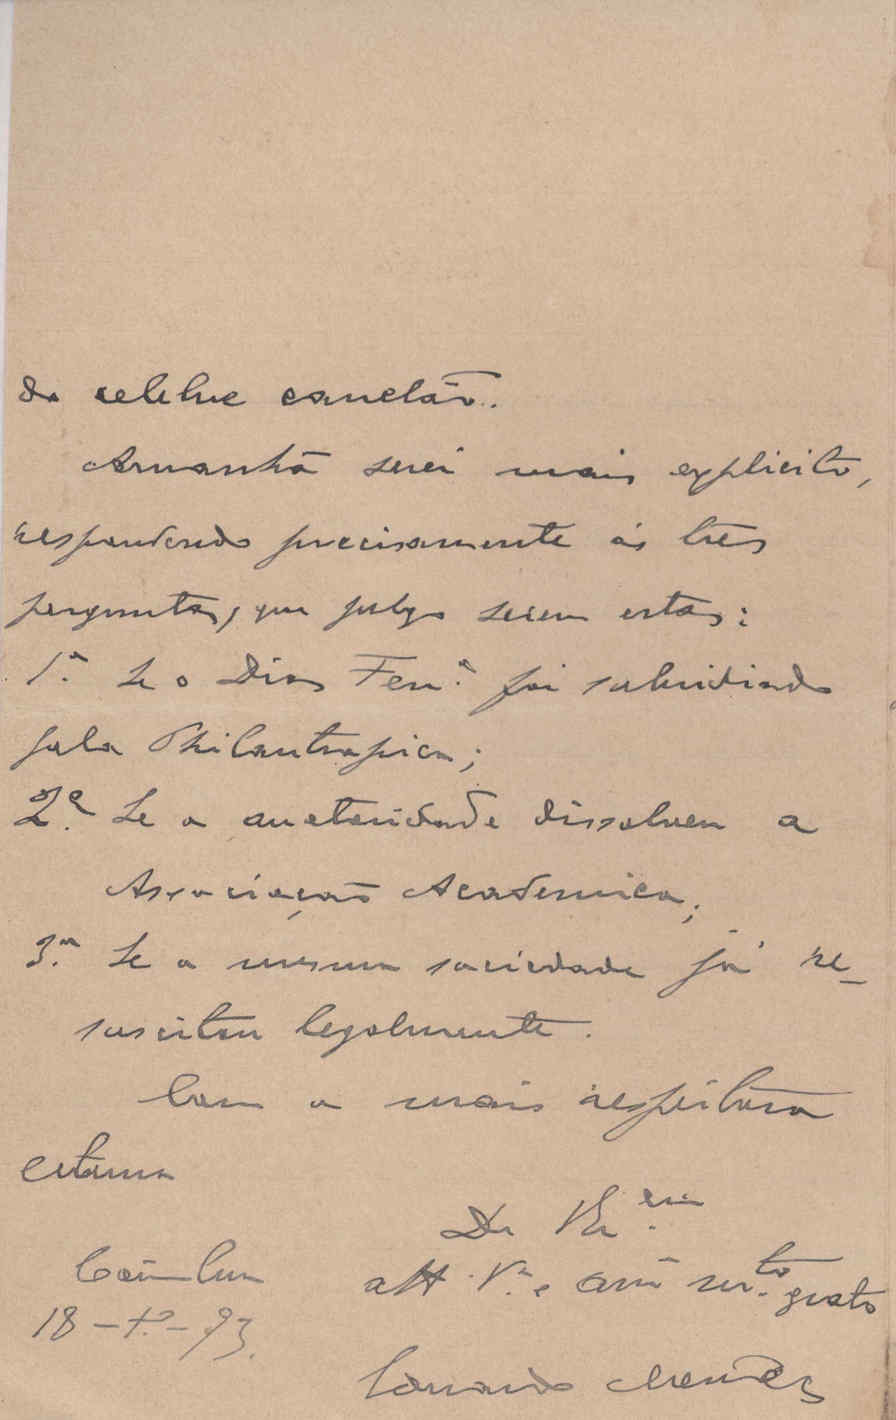 do celebre cancelão.
Amanhã serei mais explicito,
respondendo precisamente ás tres
perguntas, que julgo serem estas:
1.ª Se o Dias Ferr.ª foi subsidiado
pela Philantropica;
2.ª Se a auctoridade dissolveu a
Associação Academica;
3.ª Se a mesma sociedade já re-
suscitou legalmente.
Com a mais respeitosa
estima
De V. Ex.
Coimbra
att.º V.ºr e am.º mt.to grato
18-12-93.
Mendes